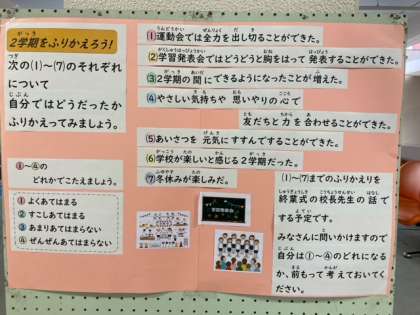 2学期をふりかえろう!
次の(1)~(7)のそれぞれ
について
自分ではどうだったか
ふりかえってみましょう。
①~④の
どれかでこたえましょう。
①よくあてはまる
②すこしあてはまる
③あまりあてはまらない
④ぜんぜんあてはまらない
①運動会では全力を出し切ることができた。
②学習発表会ではどうどうと胸をはって発表することができた。
③2学期の間にできるようになったことが増えた。
④やさしい気持ちや思いやりの心で
友だちと力を合わせることができた。
⑤あいさつを元気にすすんですることができた。
⑥学校が楽しいと感じる2学期だった。
⑦冬休みが楽しみだ。
(1)~(7)までのふりかえりを
終業式の校長先生の話で
する予定です。
みなさんに問いかけますので
自分は①~④のどれになる
か、前もって考えておいてく
ださい。